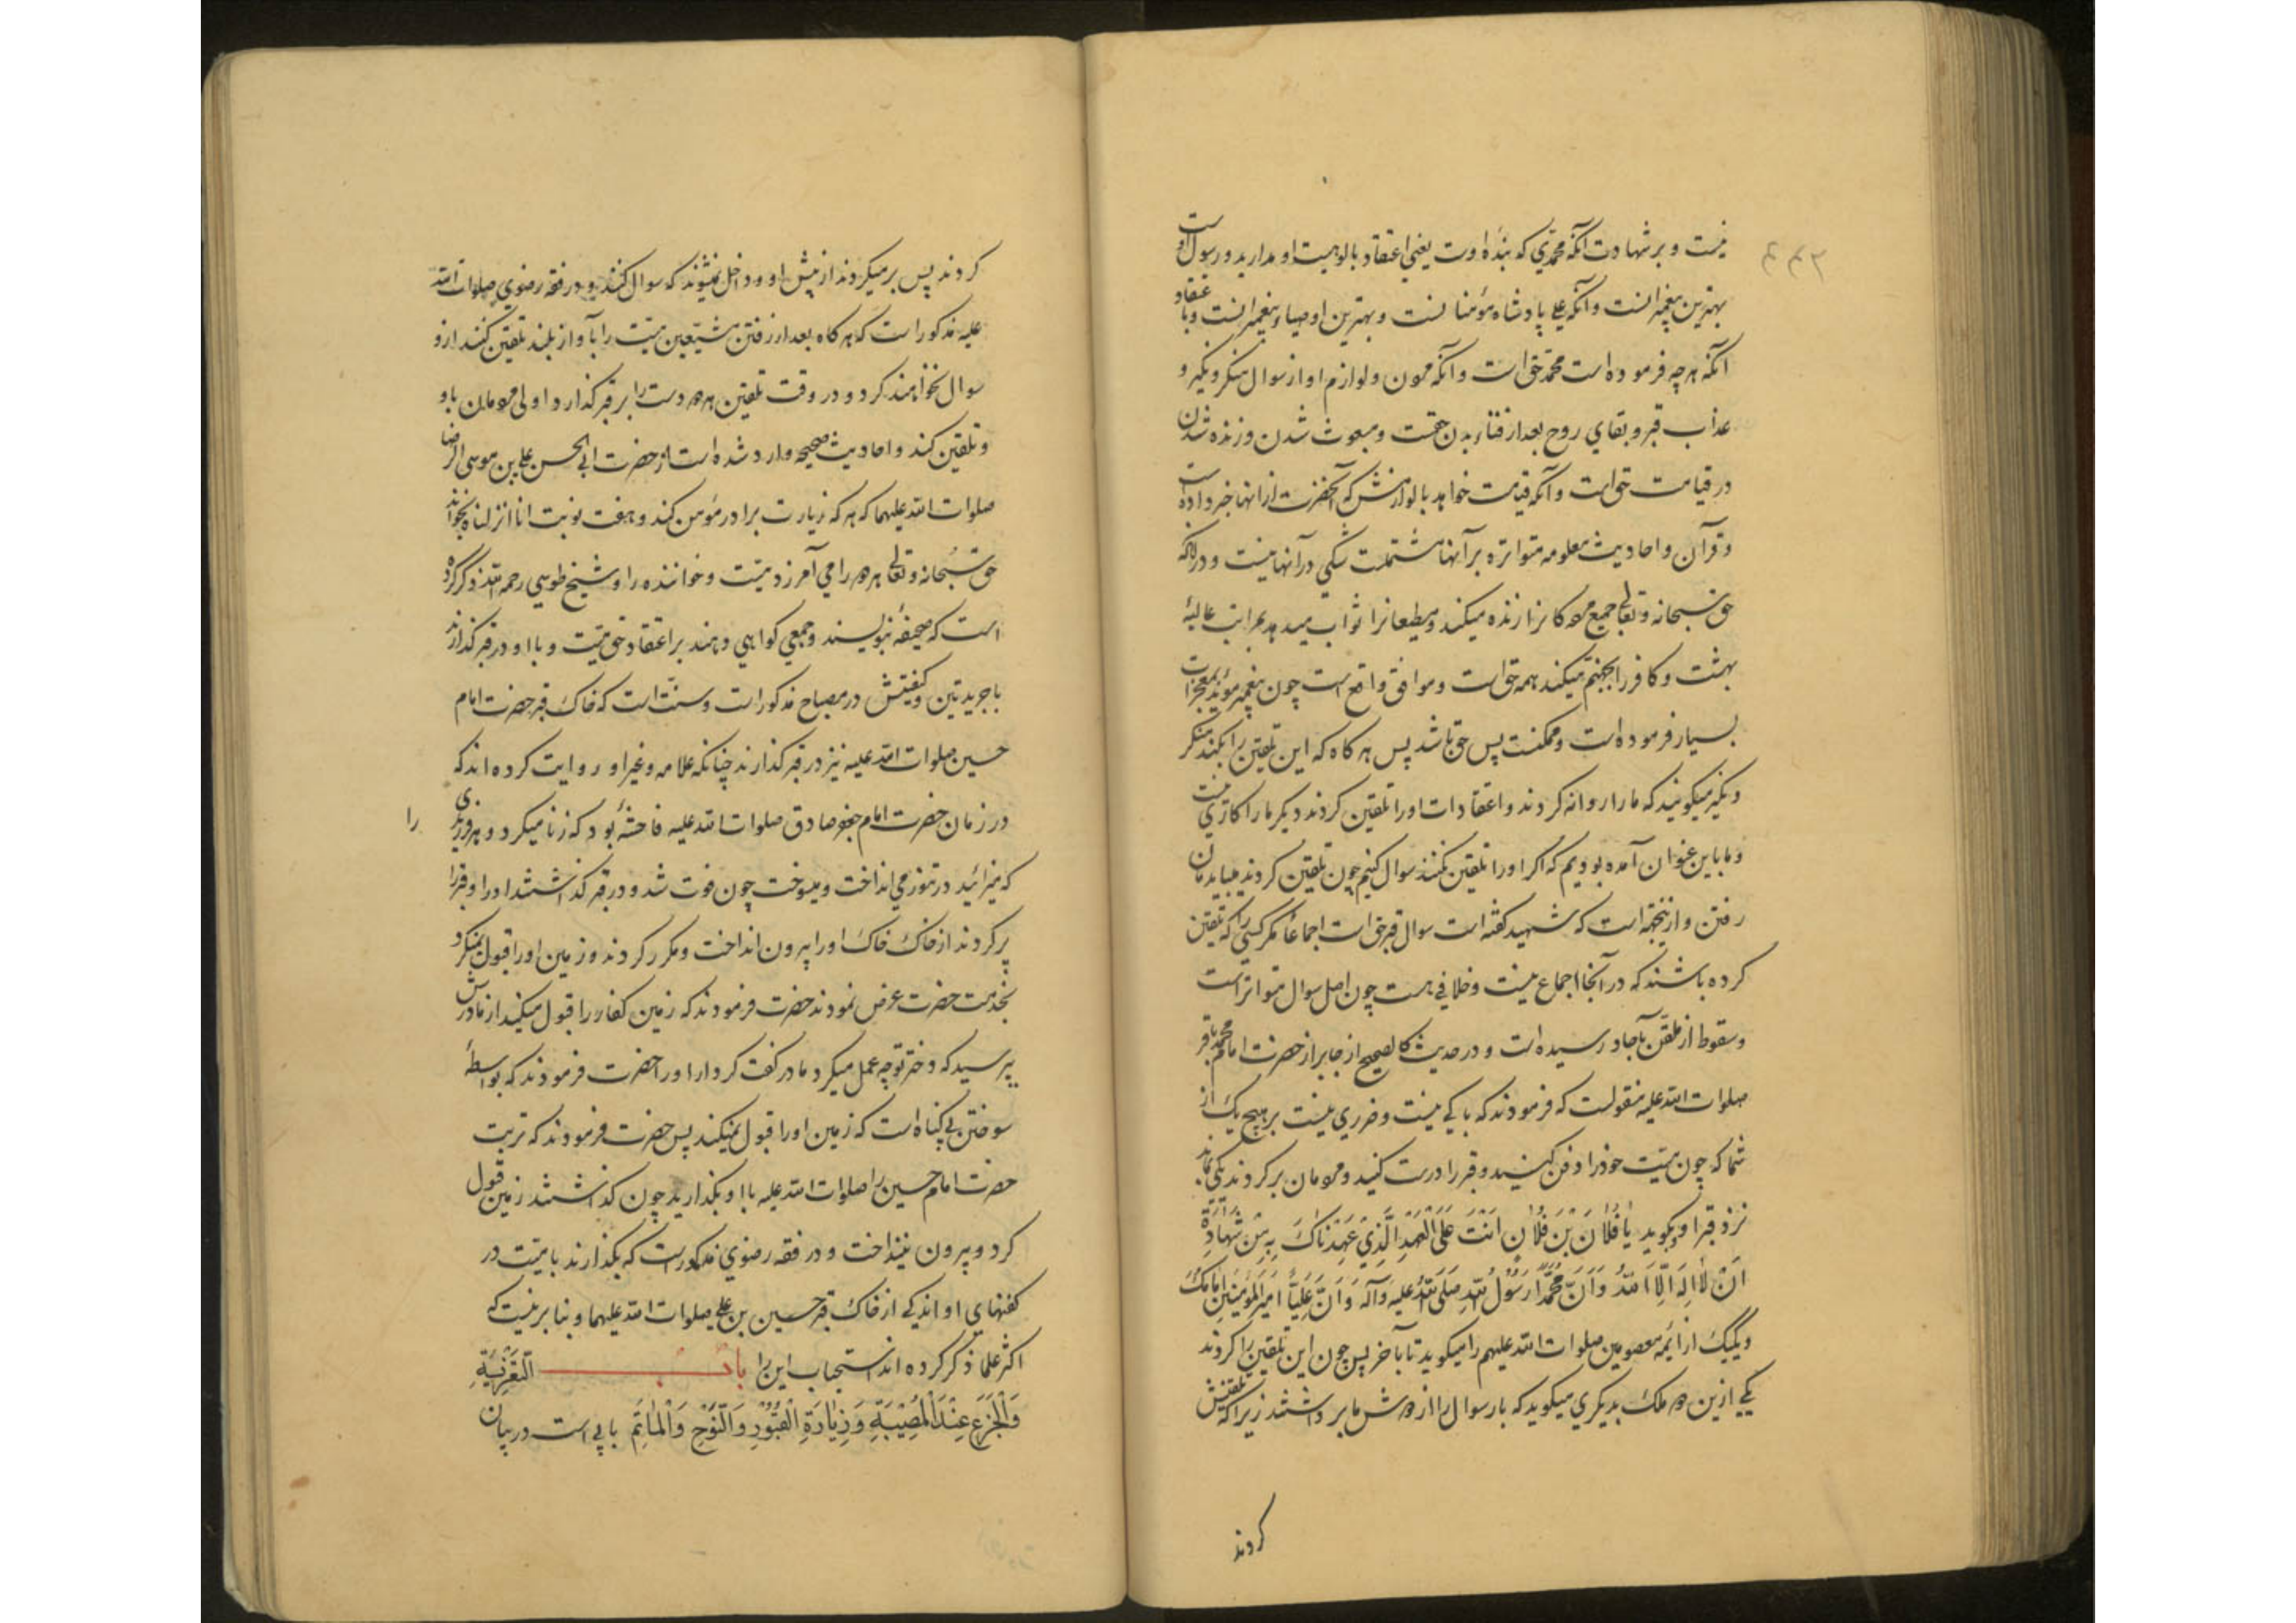 ۴۴۳
نیست و بر شهادت آنکه محمدی که بنده اوست یعنی اعتقاد بالوهیت او مدارید و رسول اوست
بهترین پیغمبرانست و آنکه علی پادشاه مؤمنانست و بهترین اوصیاء پیغمبرانست و با عتقاد
آنکه هر چه فرموده است محمد حق است و آنکه مردن و لوازم او از سوال منکر و نکیر و
عذاب قبر و بقای روح بعد از فناء بدن حقست و مبعوث شدن و زنده شدن
در قیامت حق است و آنکه قیامت خواهد بالوازمش که آنحضرت از انها خبر داده است
و قرآن و احادیث معلومه متواتره بر آنها مشتملست شکی در آنها نیست و در آنکه
حق سبحانه و تعالی جمیع مردکانرا زنده میکند و مطیعانرا ثواب میدهد بمراتب عالیهٔ
بهشت و کافر را بجهنم میکند همه حق است و موافق واقع است چون پیغمبر مؤید بمعجزات
بسیار فرموده است و ممکنست پس حق باشد پس هر کاه که این تلقین را بکند منکر
و نکیر میکویند که ما را روانه کردند و اعتقادات او را تلقین کردند دیکر ما را کاری نیست
و ما باین عنوان آمده بودیم که اکر او را تلقین نکنند سوال کنیم چون تلقین کردند میبایدمان
رفتن و از ینجهة است که شهید کفته است سوال قبر حق است اجماعاً مکر کسی را که تلقین
کرده باشند که در آنجا اجماع نیست و خلافی هست چون اصل سوال متواتر است
و سقوط از ملقن بآحاد رسیده است و در حدیث کالصحیح از جابر از حضرت امام محمد باقر
صلوات الله علیه منقولست که فرمودند که باکی نیست و ضرری نیست بر هیچ یک از
شما که چون میت خود را دفن کنید و قبر را درست کنید و مردمان بر کردند یکی بماند
نزد قبر او و بکوید یا فُلانَ بْنَ فُلانٍ اَنْتَ عَلَی الْعَهْدِ الَّذِی عَهِدْناکَ بِهِ مِنْ شَهادَةِ
اَنْ لا اِلهَ اِلَّا اللهُ وَ اَنَّ مُحَمَّداً رَسُولُ اللهِ صَلَّی اللهُ عَلیهِ وَآلِه وَ اَنَّ عَلِیّاً اَمیرُ الْمُؤمِنینَ اِمامُکَ
و یکیک از ائمه معصومین صلوات الله علیهم را میکوید تا بآخر پس چون این تلقین را کردند
یکی ازین دو ملک بدیکری میکوید که بار سوال را از دوش ما بر داشتند زیرا که تلقینش
کردند
کردند پس بر میکردند از پیش او و داخل نمیشوند که سوال کنند و در فقه رضوی صلوات الله
علیه مذکور است که هر کاه بعد از رفتن مشیعین میت را بآواز بلند تلقین کنند ازو
سوال نخواهند کرد و در وقت تلقین هر دو دست را بر قبر کذارد اولی مردمان باو
و تلقین کند و احادیث صحیحه وارد شده است از حضرت ابی الحسن علی بن موسی الرضا
صلوات الله علیهما که هر که زیارت برادر مؤمن کند و هفت نوبت انا انزلناه بخواند
حق سبحانه و تعالی هر دو را می آمرزد میت و خواننده را و شیخ طوسی رحمه الله ذکر کرده
است که صحیفهٔ بنویسند و جمعی کواهی دهند بر اعتقاد حق میت و با او در قبر کذارند
با جریدتین و کیفیتش در مصباح مذکور است و سنت است که خاک قبر حضرت امام
حسین صلوات الله علیه نیز در قبر کذارند چنانکه علامه و غیر او روایت کرده اند که
در زمان حضرت امام جعفر صادق صلوات الله علیه فاحشهٔ بود که زنا میکرد و هر فرزندی را
که میزائید در تنور می انداخت و میسوخت چون فوت شد و در قبر کذاشتند او را و قبر را
پر کردند از خاک خاک او را بیرون انداخت و مکرر کردند و زمین او را قبول نمیکرد
بخدمت حضرت عرض نمودند حضرت فرمودند که زمین کفار را قبول میکند از مادرش
پرسید که دختر تو چه عمل میکرد مادر کفت کردار او را حضرت فرمودند که بواسطهٔ
سوختن بی کناه است که زمین او را قبول نمیکند پس حضرت فرمودند که تربت
حضرت امام حسین را صلوات الله علیه با او بکذارید چون کذاشتند زمین قبول
کرد و بیرون نینداخت و در فقه رضوی مذکور است که بکذارند با میت در
کفنهای او اندکی از خاک قبر حسین بن علی صلوات الله علیهما و بنا برینست که
اکثر علما ذکر کرده اند استحباب این را بابُ التَّعْزِیَةِ
وَالْجَزَعِ عِنْدَ الْمُصیبَةِ وَ زِیارَةِ الْقُبُورِ وَ النَّوْحِ وَالْمَاتَمِ بابی است در بیان